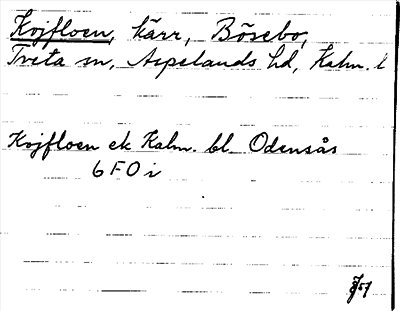 Kojfloen, kärr, Bösebo,
Tveta sn, Aspelands hd, Kalm. l
Kojfloen ek Kalm. bl. Odensås
6 F O i